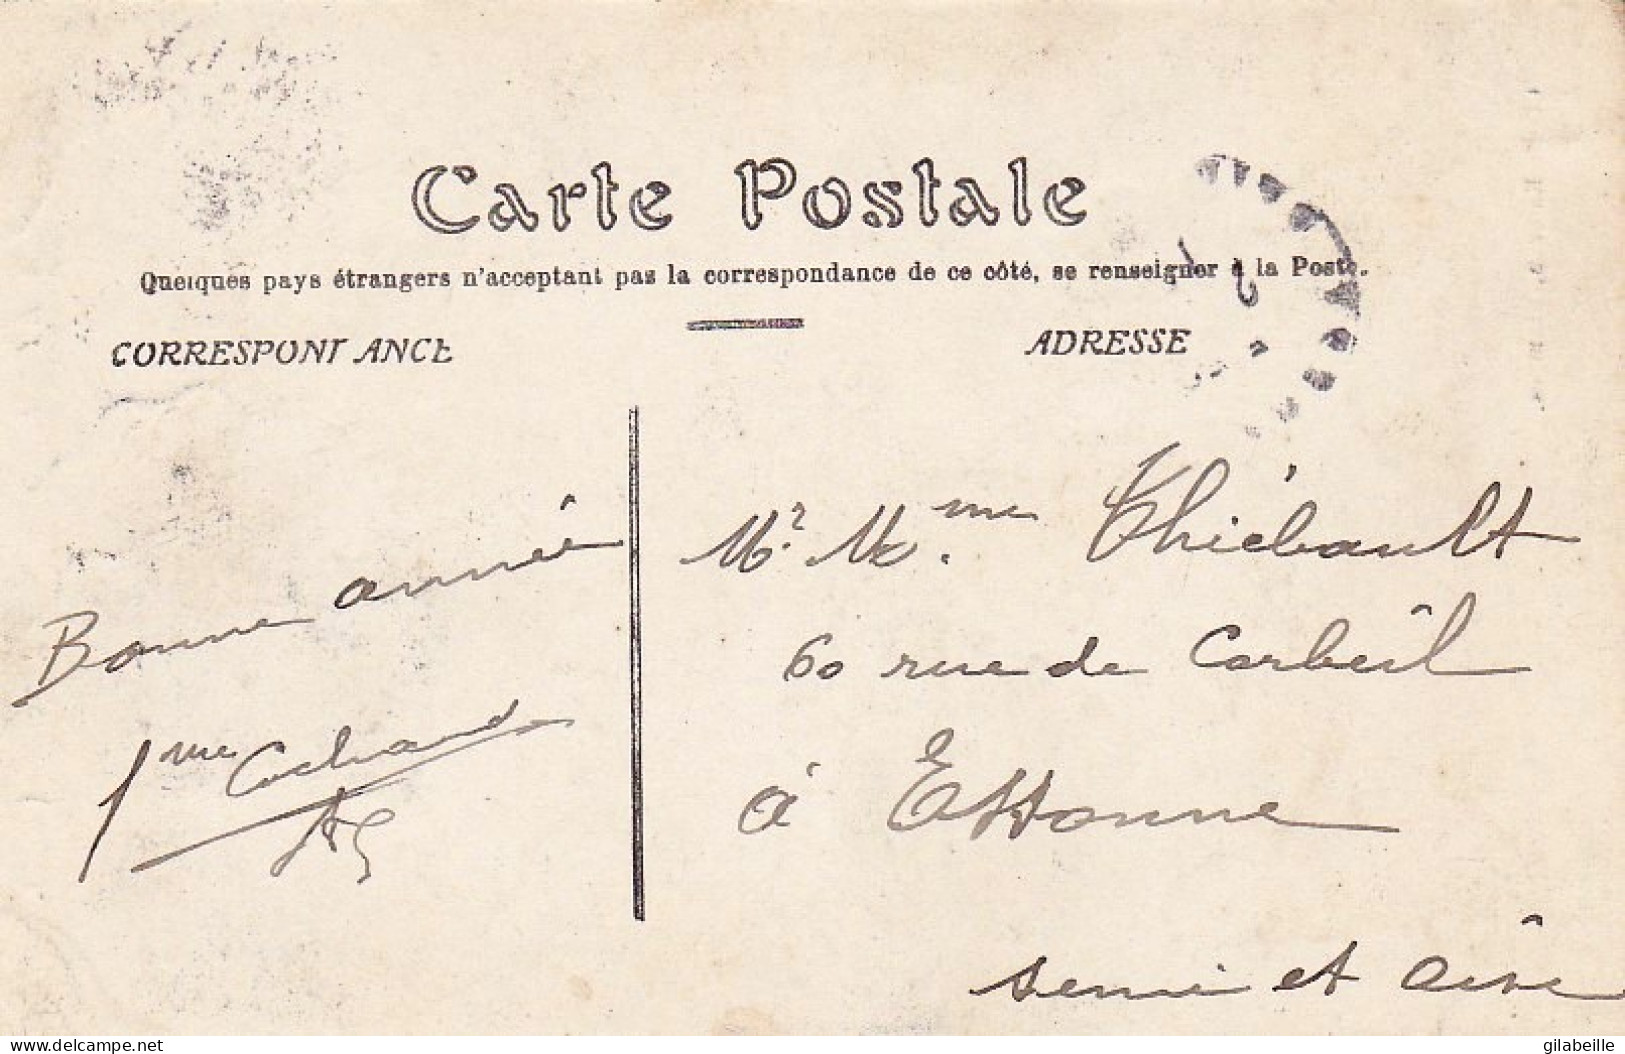 Carte Postale
Quelques pays étrangers n'acceptant pas la correspondance de ce côté, se renseigner à la Poste.
CORRESPONDANCE
ADRESSE
Bonne année
Cochard
Mr. Mme. Thiébault
60 rue de Corbeil
à Essonne
seine et oise
delcampe.net
gilabeille